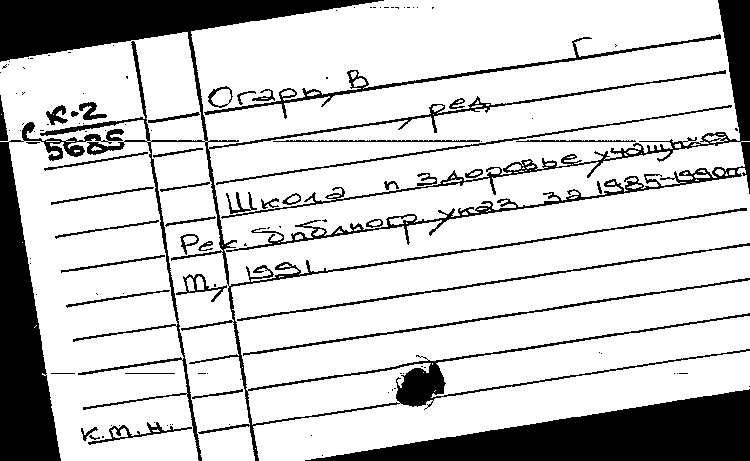 С К-2
5685
Огарь, В Г
, ред.
Школа и здоровье учащихся.
Рек. библиогр. указ. за 1985-1990гг.
Т., 1991.
к.т.н.